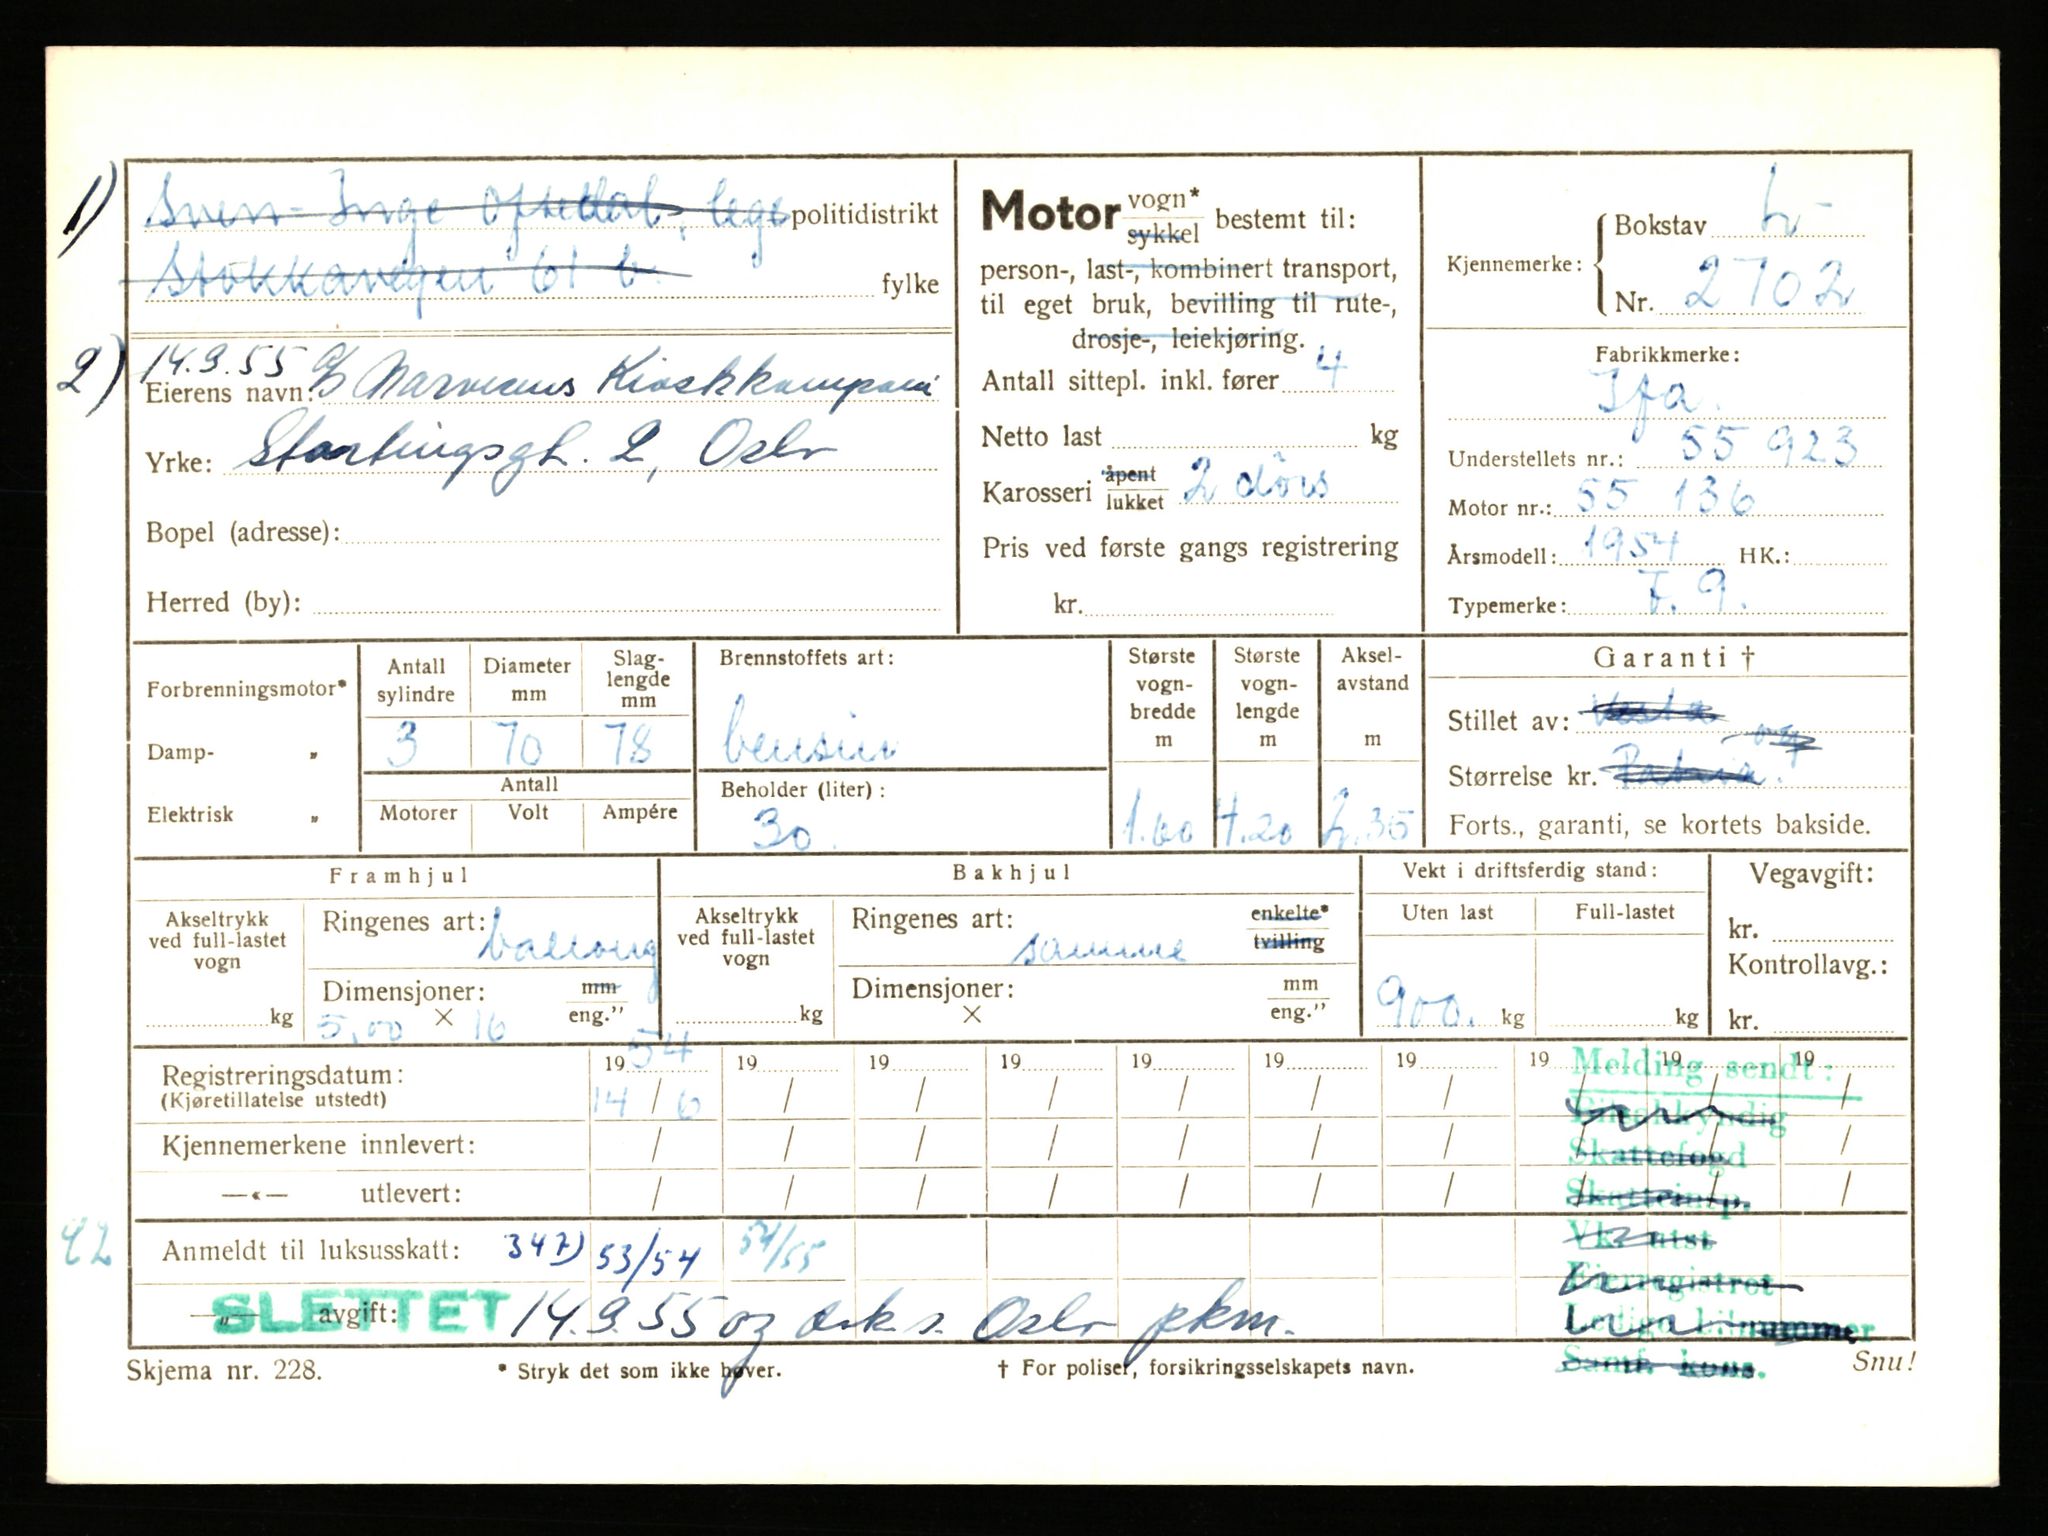 1) Sven-Inge Oftedal, lege politidistrikt
Stokkavegen 61 b. fylke
2) 14.9.55 A/S Narvesens Kioskkompani
Eierens navn:
Yrke: Stortingsgt. 2, Oslo
Bopel (adresse):
Herred (by):
Motor vogn* sykkel bestemt til:
person-, last-, kombinert transport,
til eget bruk, bevilling til rute-,
drosje-, leiekjøring.
Antall sittepl. inkl. fører 4
Netto last kg
Karosseri åpent lukket 2 dörs
Pris ved første gangs registrering
kr.
Kjennemerke: Bokstav L-
Nr. 2702
Fabrikkmerke:
Ifa.
Understellets nr.: 55 923
Motor nr.: 55 136
Årsmodell: 1954 HK.:
Typemerke: F. 9.
Forbrenningsmotor*
Damp- „
Elektrisk „
Antall sylindre 3
Diameter mm 70
Slag-lengde mm 78
Antall
Motorer Volt Ampére
Brennstoffets art:
bensin
Beholder (liter):
30.
Største vogn-bredde m 1.60
Største vogn-lengde m 4.20
Aksel-avstand m 2.35
Garanti †
Stillet av: Vesta og
Størrelse kr. Patria.
Forts., garanti, se kortets bakside.
Framhjul
Akseltrykk ved full-lastet vogn
kg
Ringenes art: ballong
Dimensjoner: mm
5,00 × 16 eng.”
Bakhjul
Akseltrykk ved full-lastet vogn
kg
Ringenes art: samme enkelte* tvilling
Dimensjoner: mm
× eng.”
Vekt i driftsferdig stand:
Uten last Full-lastet
900. kg kg
Vegavgift:
kr.
Kontrollavg.:
kr.
Registreringsdatum: 1954 19 19 19 19 19 19 19 19 19
(Kjøretillatelse utstedt) 14 / 6 / / / / / / / / /
Kjennemerkene innlevert: / / / / / / / / / /
—«— utlevert: / / / / / / / / / /
Melding sendt:
Bilsakkyndig
Skattefogd
Skatteinsp.
Vk. utst
Eierregistret
Ledige bilnummer
Samf. kons.
92 Anmeldt til luksusskatt: 347) 53/54 54/55
—„— avgift: SLETTET 14.9.55 og ark. s. Oslo pkm.
Skjema nr. 228. * Stryk det som ikke høver. † For poliser, forsikringsselskapets navn. Snu!